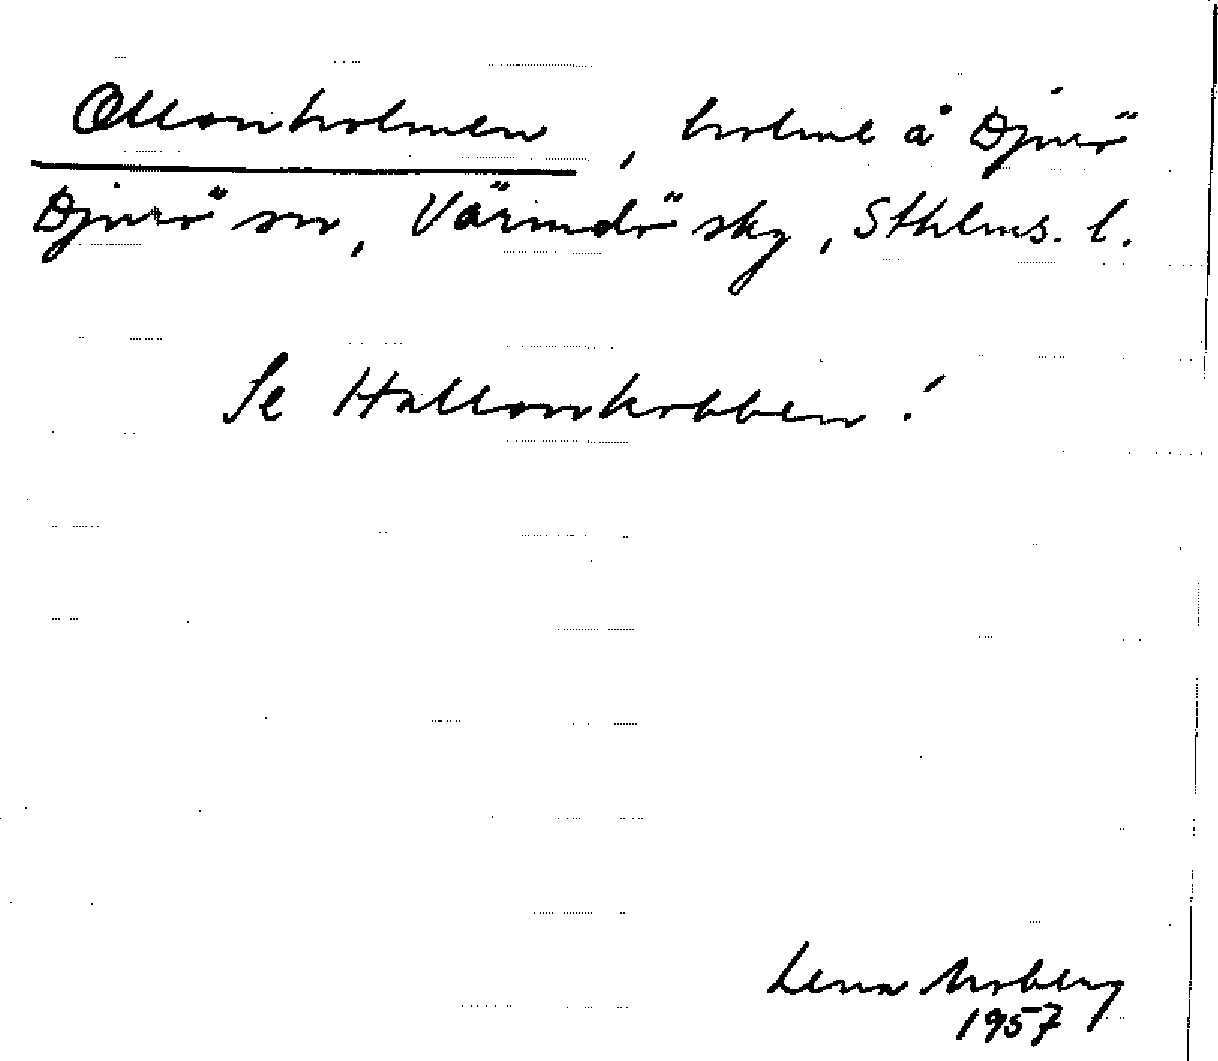 Ollonholmen, holme å Djurö
Djurö sn, Värmdö skg, Sthlms. l.
Se Hallonkobben!
Lena Moberg
1957